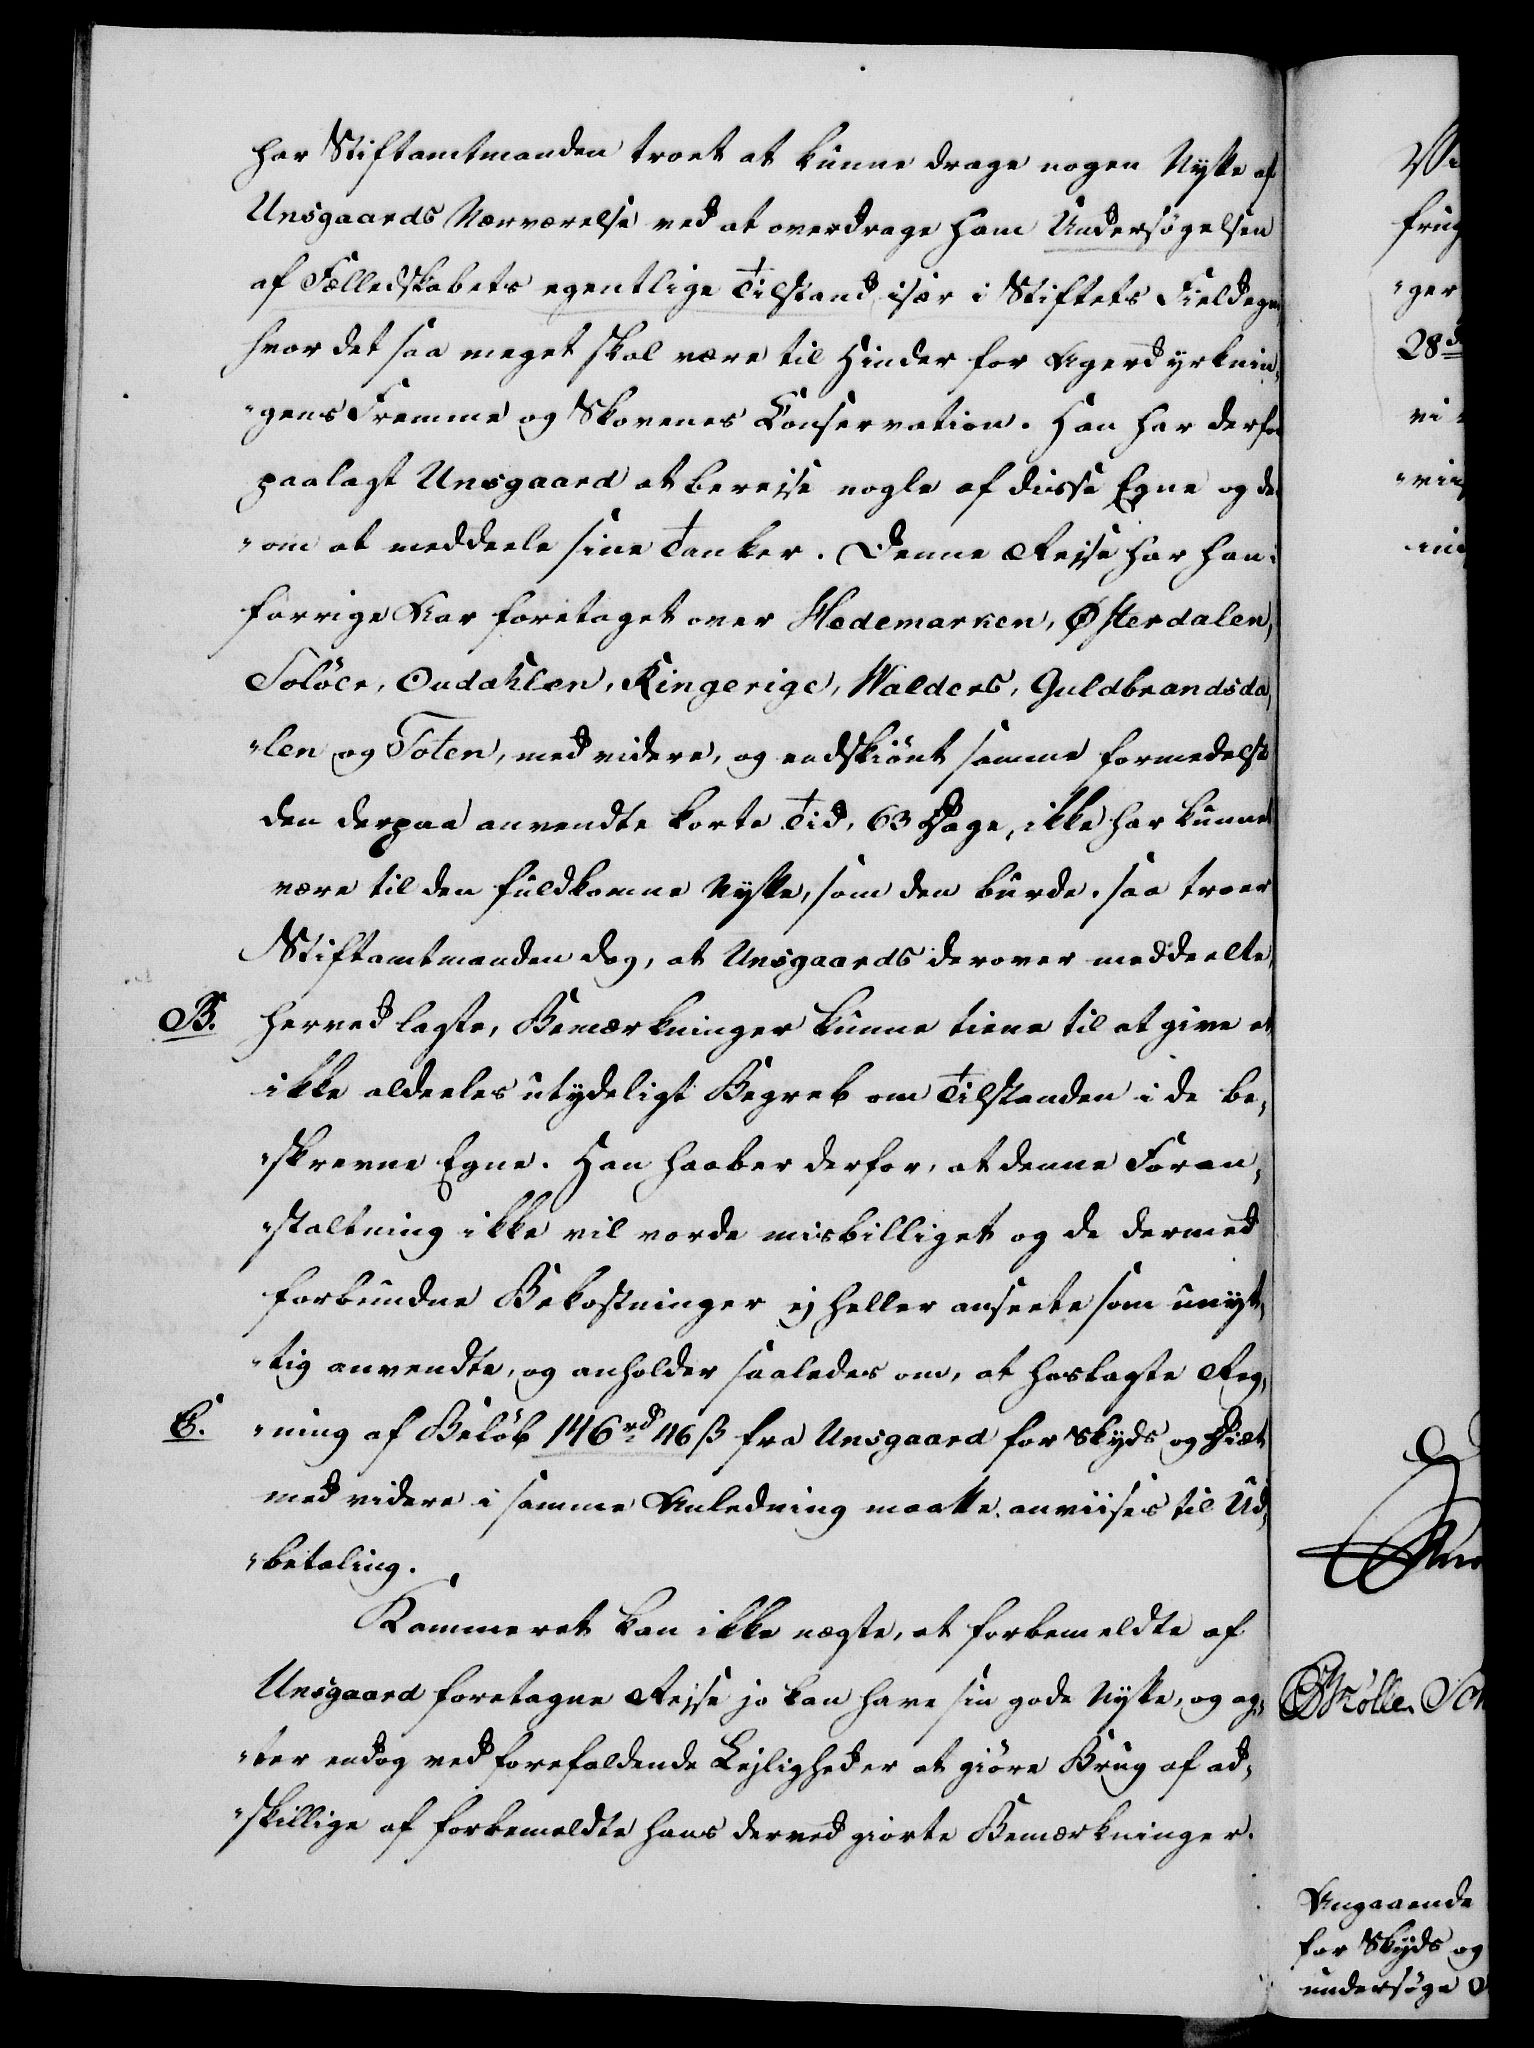 har Stiftamtmanden troet at kunne drage nogen Nytte af
Unsgaards Nærværelse ved at overdrage ham Undersøgelsen
af Fælledskabets egentlige Tilstand især i Stiftets Fieldegne
hvor det saa meget skal være til Hinder for Agerdyrknin„
„gens Fremme og Skovenes Conservation. Han har derfor
paalagt Unsgaard at bereise nogle af disse Egne og der
„om at meddeele sine Tanker. Denne Reise har han i
forrige Aar foretaget over Hedemarken, Østerdalen,
Solöer, Oudahlen, Ringerige, Walders, Guldbrandsda„
„len og Toten, med videre, og endskiönt samme formedelst
den derpaa anvendte korte Tid, 63 Dage, ikke har kunnet
være til den fuldkomne Nytte, som den burde, saa troer
Stiftamtmanden dog, at Unsgaards derover meddeelte,
B. herved lagte, Bemærkninger kunne tiene til at give et
ikke aldeeles utydeligt Begreb om Tilstanden i de be„
„skrevne Egne. Han haaber derfor, at denne Foran„
„staltning ikke vil vorde misbilliget og de dermed
forbundne Bekostninger ej heller anseete som unyt„
„tig anvendte, og anholder saaledes om, at hoslagte Reg„
C. „ning af Beløb 146 rd 46 ß fra Unsgaard for Skyds og Diæt
med videre i samme Anledning maatte anviises til Ud„
„betaling.
Kammeret kan ikke nægte, at forbemeldte af
Unsgaard foretagne Reise jo kan have sin gode Nytte, og ag„
„ter endog ved forefaldende Lejligheder at giöre Brug af ad„
„skillige af forbemeldte hans derved giorte Bemærkninger.
28d
Møller
Angaaende
for Skyds og
undersøge